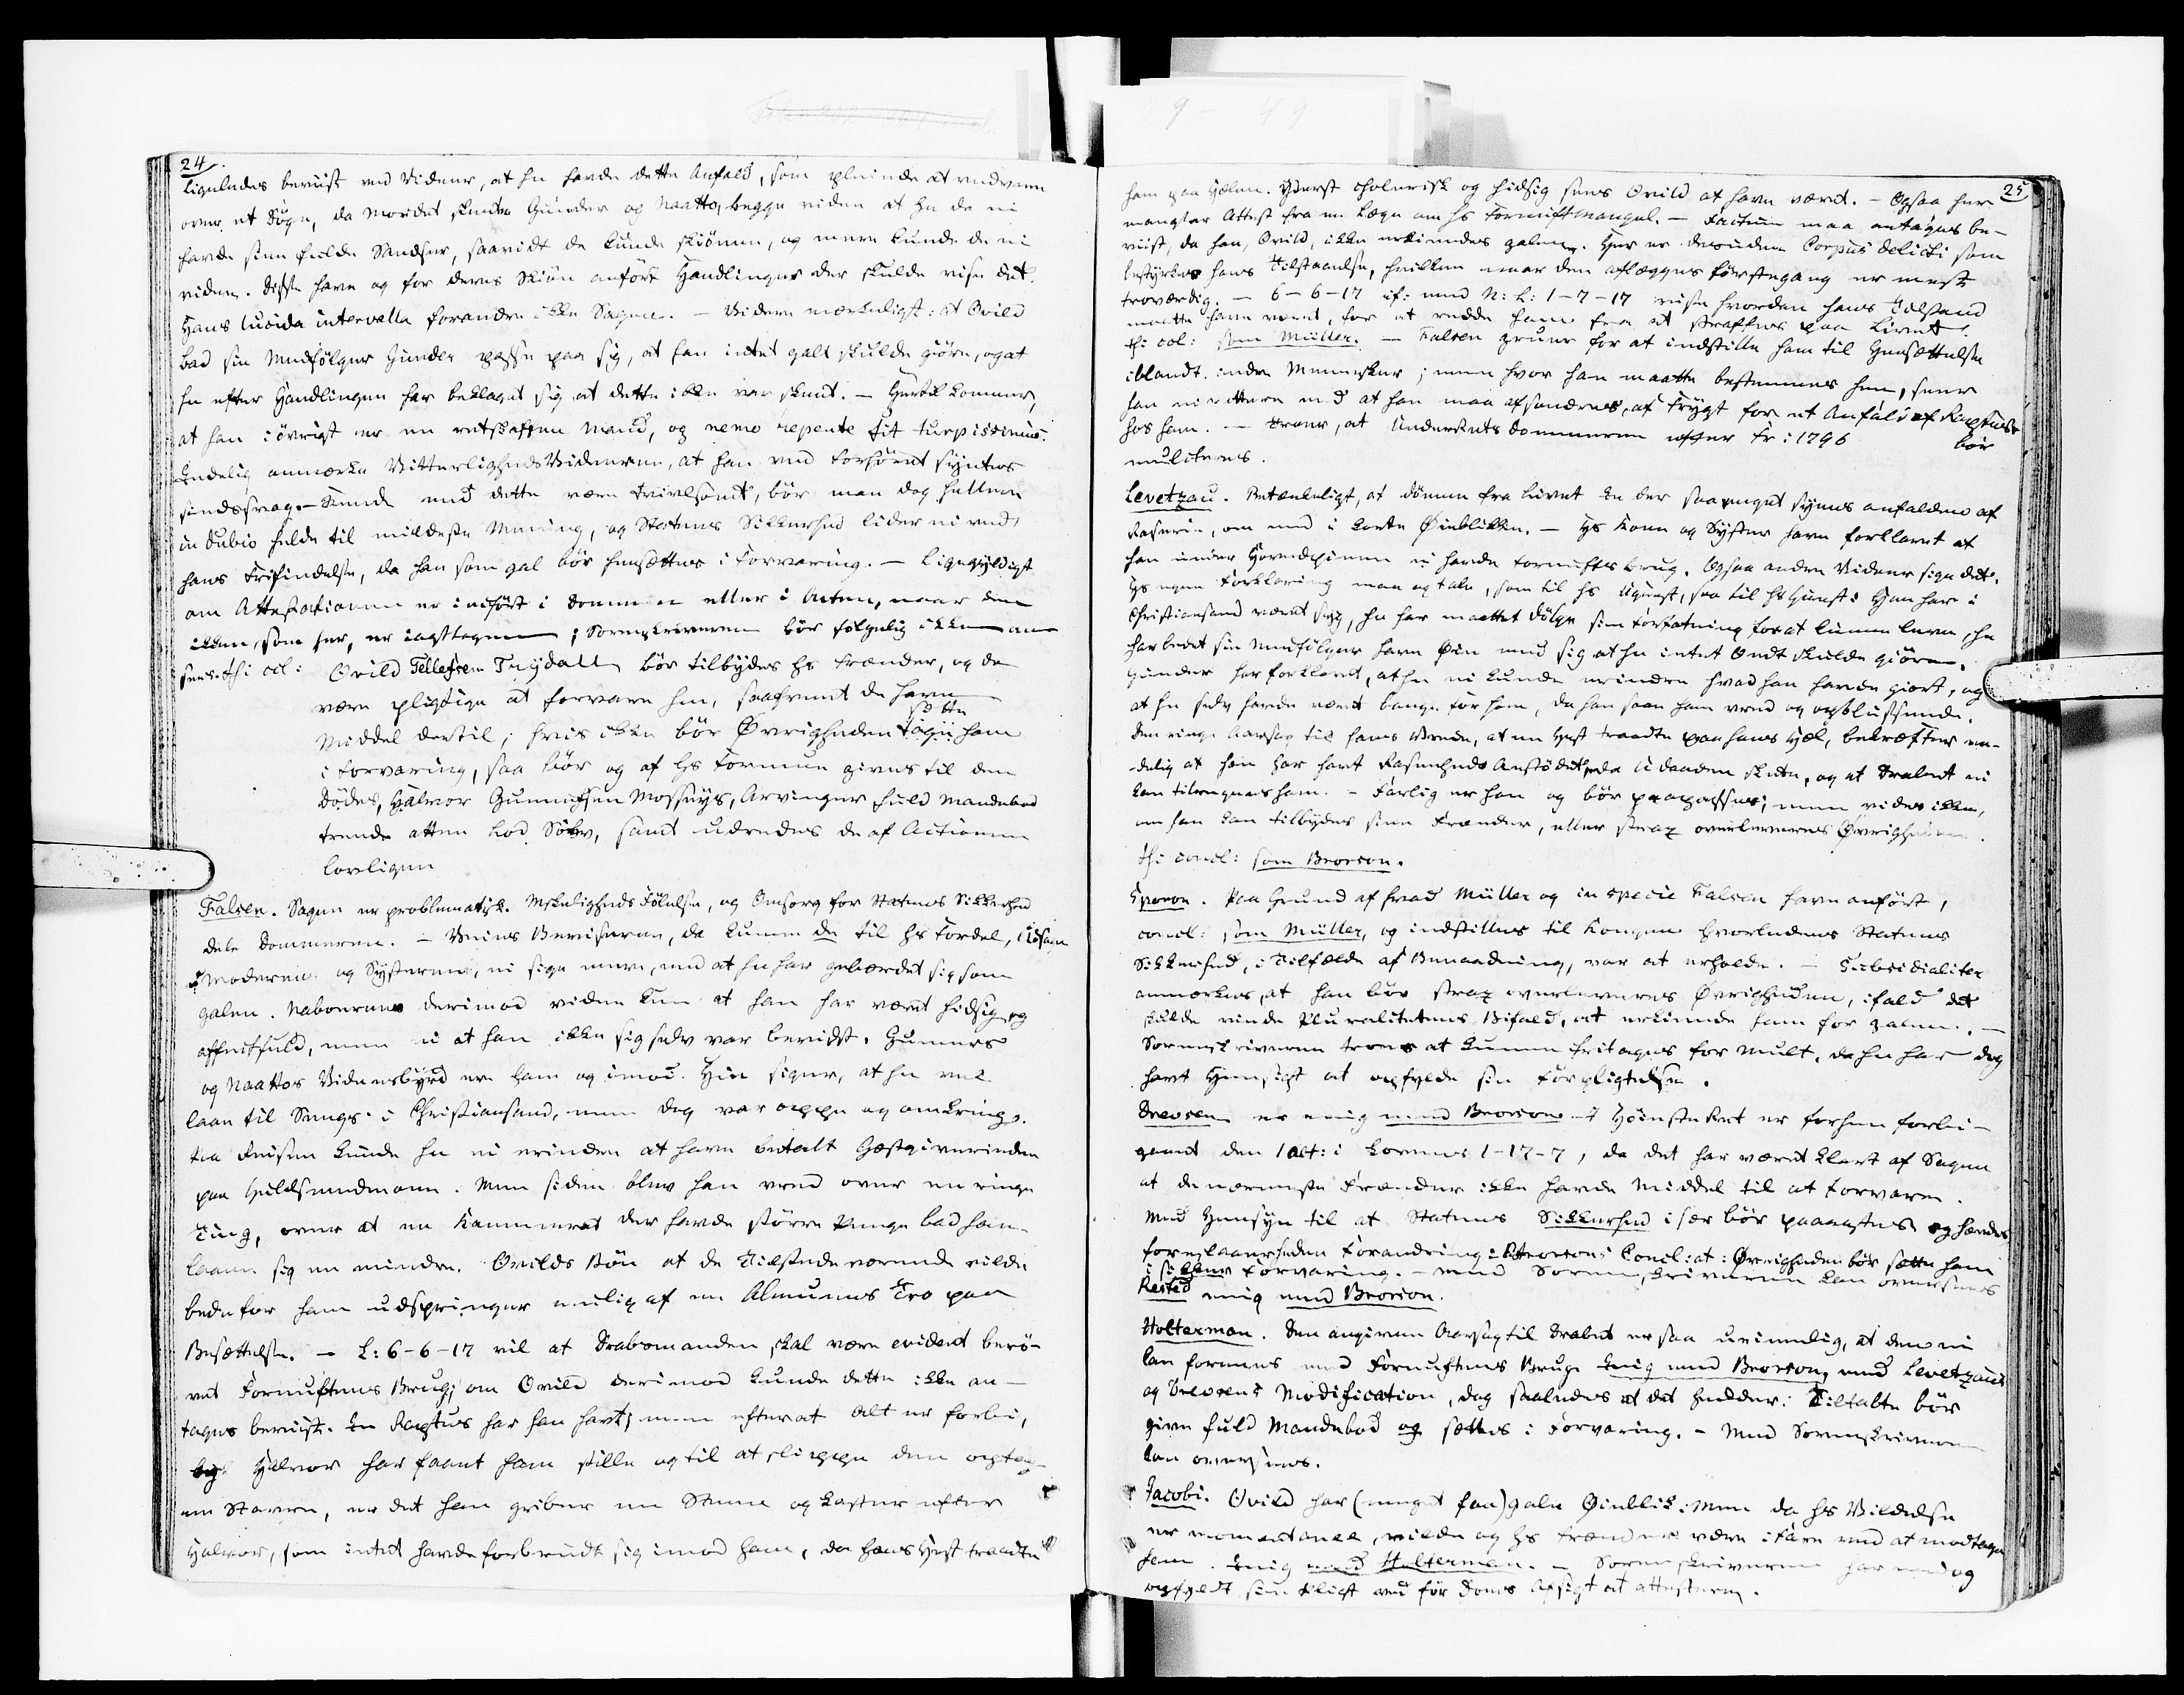 24.
ligeledes beviist ved Vidner, at han havde dette Anfald, som pleiede at vedvare
over et Døgn, da Mordet skeedte Gunder og Naatto, begge viden at han da ei
havde sine fulde Sandser, saavidt de kunde skiønne, og mere kunde de ei
viden. Disse have og for deres Skiøn anført Handlinger der skulde vise det.
Hans lucida intervalla forandre ikke Sagen. — Videre mærkeligt: at Ovild
bad sin Medfølger Gunder passe paa sig, at han intet galt skulde giøre, og at
han efter Handlingen har beklaget sig at dette ikke var skeet. — Hertil kommer,
at han i øvrigt er en retskaffen Mand, og nemo repente fit turpissimus.
Endelig anmærke VitterlighedsVidnerne, at han ved Forhøret syntes
sindssvag. — Kunde end dette være tvivlsomt, bør man dog hellere
in dubio helde til mildeste Mening, og Statens Sikkerhed lider ei ved
hans Frifindelse, da han som gal bør hensættes i Forvaring. — Ligegyldigt
om Attestationen er indført i Dommen eller i Acten, naar den
ikkun, som her, er iagttagen; Sorenskriveren bør følgelig ikke an-
sees. Thi col: Ovild Tellefsen Trydall bør tilbydes hs Frænder, og de
være pligtige at forvare ham, saafremt de have
Middel dertil; hvis ikke bør Øvrigheden sætte ham
i Forvaring, saa bør og af hs Formue gives til den
dødes, Halvor Gunnufsen Mossøys, Arvinger fuld Mandebod
trende atten Lod Sølv, samt udredes de af Actionen
lovligen
Falsen. Sagen er problematisk. Mskeligheds Følelse, og Omsorg for Statens Sikkerhed
dele Dommeren. — Veies Beviserne, da kunne de til hs Fordel, Kone
Moderen og Systeren, ei sige mere, end at han har gebærdet sig som
galen. Naboerne derimod viden kun at han har været hidsig og
affectfuld, men ei at han ikke sig selv var bevidst. Gunners
og Naattos Vidnesbyrd ere ham og imod. Hiin siger, at han vel
laae til Sengs i Christiansand, men dog var oppe og omkring.
Paa Reisen kunde han ei erindre at have betalt Giæstgiverinden
paa Heldsmedmoen. Men siden blev han vred over en ringe
Ting, over at en Kammerat der havde større Penge bad ham
laane sig en mindre. Ovilds Bøn at de Tilstedeværende vilde
bede for ham udspringer muelig af en Almues Tro paa
Besættelse. — L: 6-6-17 vil at Drabsmanden skal være evident berø-
vet Fornuftens Brug; om Ovild derimod kunde dette ikke an-
tages beviist. En Raptus har han havt; men efterat alt er forbi,
Halvor har faaet ham stille og til at slippe den optag-
ne Staver, er det han griber en Steen og kaster efter
Halvor, som intet havde forbrudt sig imod ham, da hans Hest traadte
25
ham paa Hælen. Yderst cholerisk og hidsig sees Ovild at have været. — Ogsaa her
mangler Attest fra en Læge om hs Fornuftmangel. — Factum maa antages be-
viist, da han, Ovild, ikke erkiendes galen. Her er desuden Corpus delicti som
bestyrker hans Tilstaaelse, hvilken naar den aflægges førstegang er mest
troværdig. — 6-6-17 cf: med N: L: 1-7-17 vise hvordan hans Tilstand
maatte have været, for at redde ham fra at straffes paa Livet
thi col: som Müller. — Falsen gruer for at indstille ham til Hensættelse
iblandt andre Mennesker; men hvor han maatte bestemmes hen, seer
han ei rettere end at han maa afsondres, af Frygt for et Anfald af Raptus
hos ham. — Troer, at Underrets Dommeren efter Fr: 1796 bør
mulcteres.
Levetzau. Betænkeligt, at dømme fra Livet En der saa meget synes anfalden af
Raserie, om end i korte Øieblikke. — Hs Kone og Syster have forklaret at
han under Hovedpinen ei havde Fornufts Brug. Ogsaa andre Vidner sige det.
Hs egen Forklaring maa og tale, som til hs Ugunst, saa til hs Gunst: Han har i
Christiansand været syg, han har maattet dølge sin Forfatning for at kunne leve, han
har bedet sin Medfølger have Øie med sig at han intet Ondt skulde giøre.
Gunder har forklaret, at han ei kunde erindre hvad han havde giort, og
at han selv havde været bange for ham, da han saae ham vred og opblussende.
Den ringe Aarsag til hans Vrede, at en Hest traadte paa hans Hæl, bekræfter en-
delig at han har havt Raseheds Anstødet, da Udaaden skete, og at Drabet ei
kan tilregnes ham. — Farlig er han og bør paapasses; men vides ikke,
om han kan tilbydes sine Frænder, eller strax overleveres Øvrigheden.
thi concl: som Brorson.
Sporon. Paa Grund af hvad Müller og in specie Falsen have anført,
concl: som Müller, og indstilles til Kongen hvorledes Statens
Sikkerhed, i Tilfælde af Benaadning, var at erholde. — Subsidialiter
anmærkes, at han bør strax overleveres Øvrigheden, ifald det
skulde vinde Pluralitetens Bifald, at erkiende ham for galen. —
Sorenskriveren troes at kunne fritages for Mult, da han har dog
havt Hensigt at opfylde sin Forpligtelse.
Drevsen er enig med Brorson — I Høieste Ret er forhen forbi-
gaaet den 1 Alt: i Lovens 1-17-7, da det har været klart af Sagen
at de nærmeste Frænder ikke havde Middel til at forvare.
Med Hensyn til at Statens Sikkerhed især bør paaagtes og hændes
foreslaaer han Forandring i Brorsons Concl: at: Øvrigheden bør sætte ham
i sikker Forvaring. — Med Sorenskriveren kan oversees
Kested enig med Brorson.
Holterman. Den angivne Aarsag til Drabet er saa urimelig, at den ei
kan forenes med Fornuftens Brug. Enig med Brorson, med Levetzaus
og Drevsens Modification, dog saaledes at det hedder: Tiltalte bør
give fuld Mandebod og sættes i Forvaring. — Med Sorenskriveren
kan oversees.
Jacobi. Ovild har (meget faa) gale Øieblik: Men da hs Vildelse
er momentanea, vilde og hs Frænder være i Fare ved at modtage
ham. Enig med Holterman. — Sorenskriveren har end og
opfyldt sin Pligt ved før Doms Afsigt at attestere.